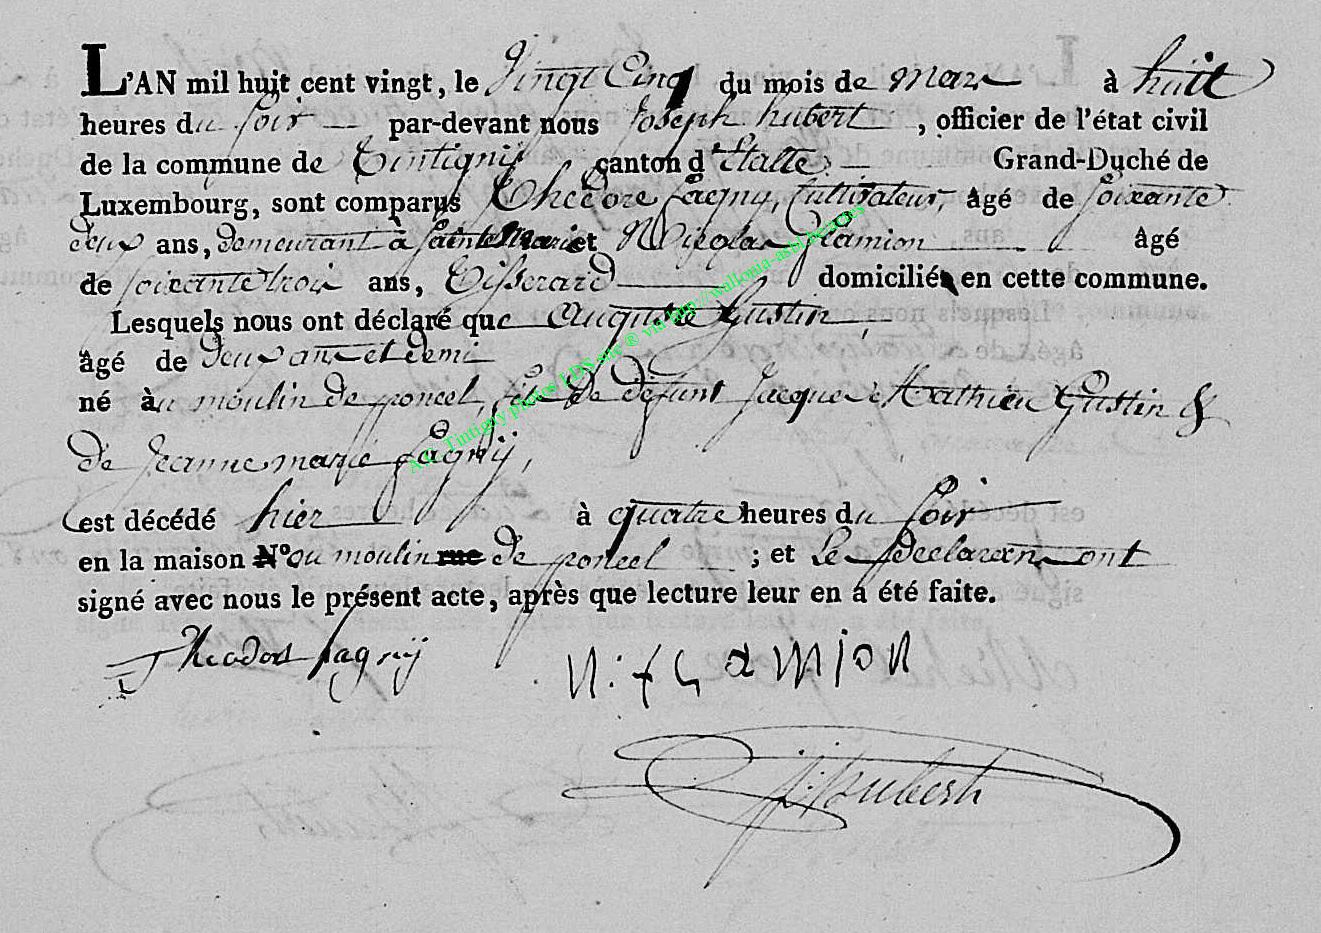 L'AN mil huit cent vingt, le Vingt Cinq du mois de mars à huit
heures du soir par-devant nous Joseph hubert, officier de l'état civil
de la commune de Tintigny canton d'Etalle Grand-Duché de
Luxembourg, sont comparus Théodore fagny, Cultivateur, âgé de soixante
deux ans, demeurant à Sainte Marie et Nicolas flamion âgé
de soixante trois ans, Tisserard domiciliés en cette commune.
Lesquels nous ont déclaré que Auguste Gustin,
âgé de deux ans et demi
né au moulin de poncel, fils de défunt Jacque Mathieu Gustin &
de Jeanne marie fagnÿ,
est décédé hier à quatre heures du soir
en la maison N° ou moulin rue de poncel ; et les declarans ont
signé avec nous le présent acte, après que lecture leur en a été faite.
Theodor fagnÿ N. flamion
J: hubert
A.C. Tintigny photos LDS site ® via http://wallonia-asbl.be/actes